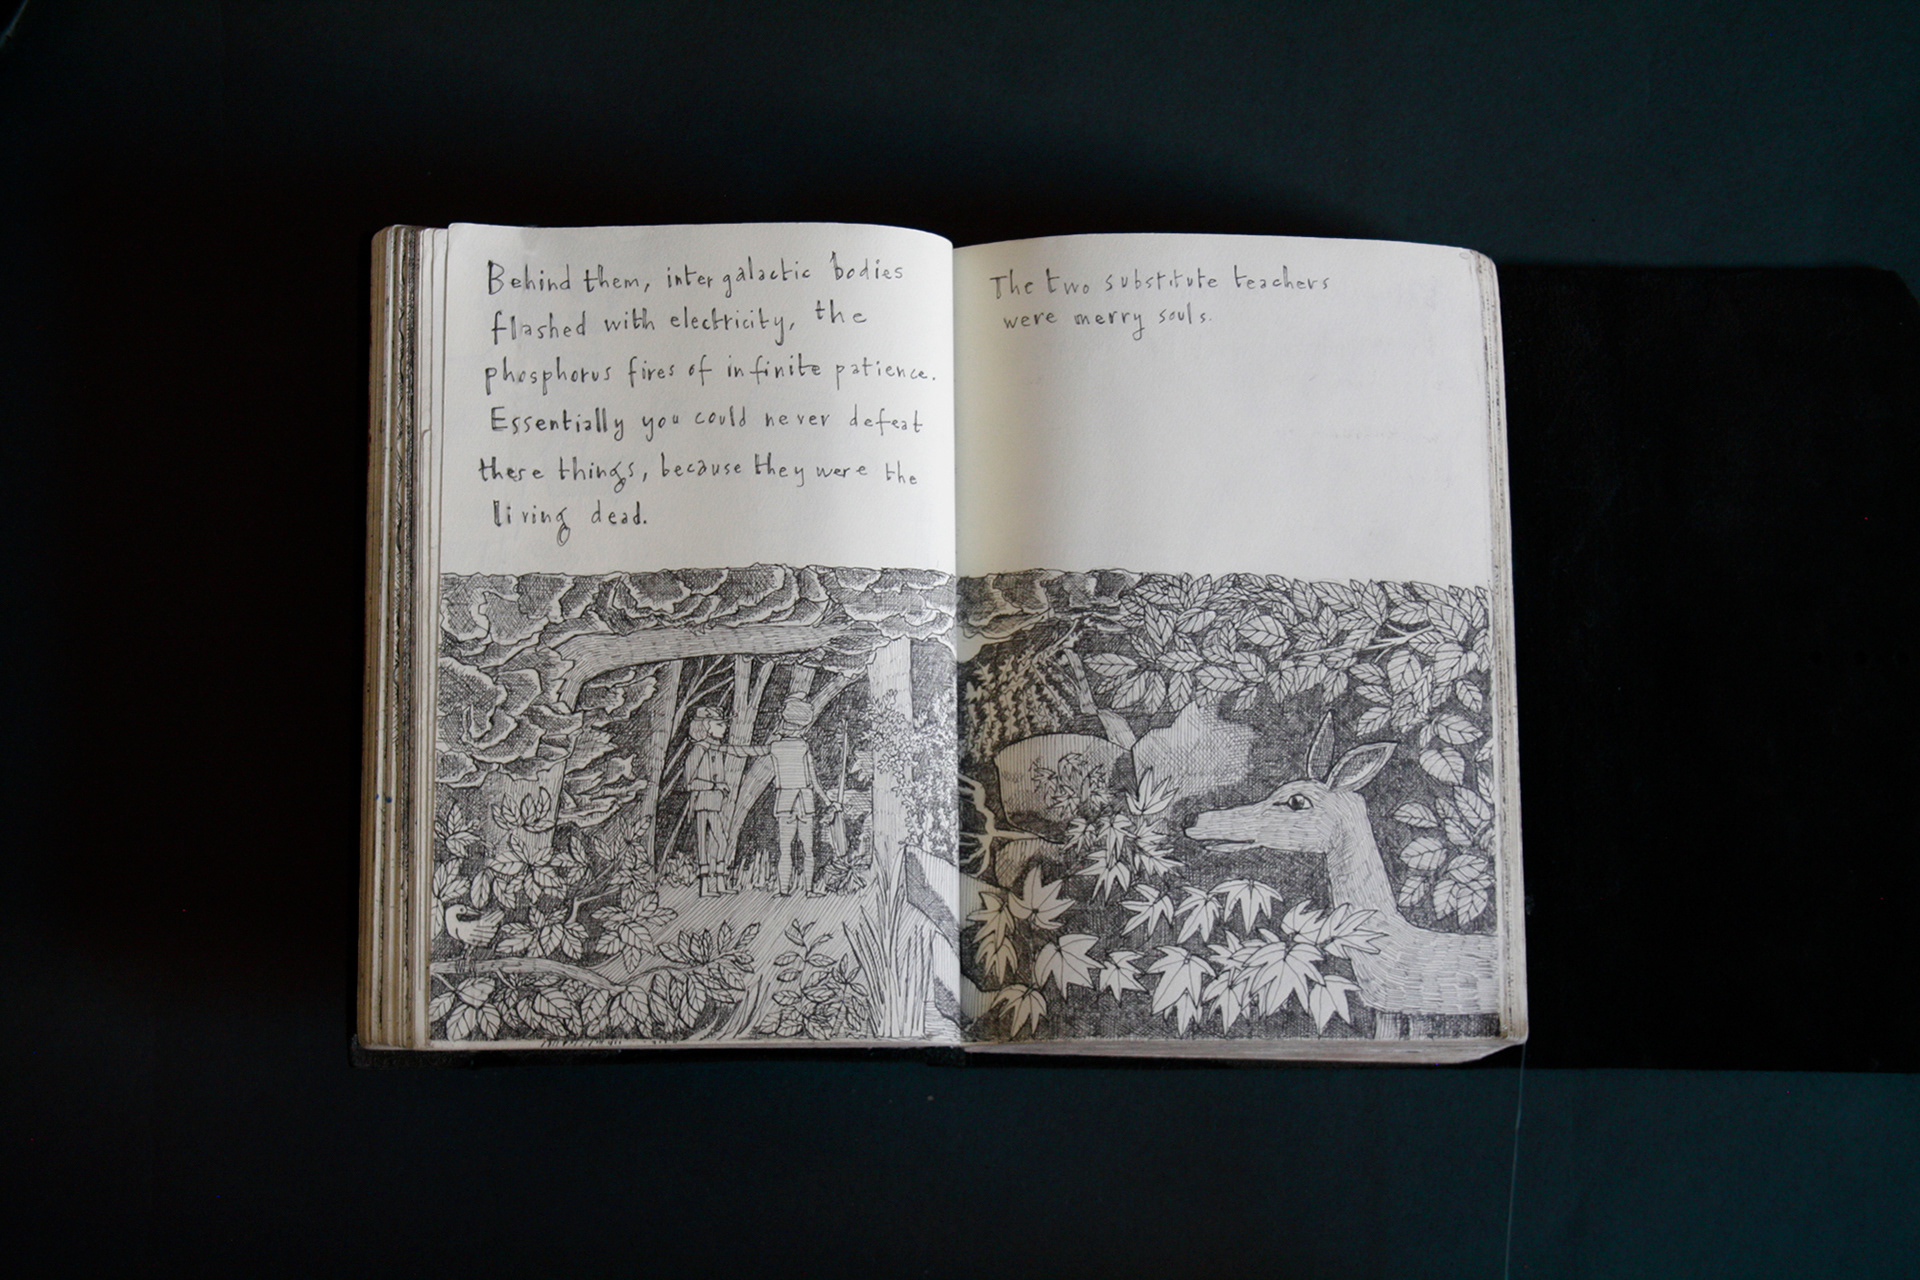 Behind them, intergalactic bodies
flashed with electricity, the
phosphorus fires of infinite patience.
Essentially you could never defeat
these things, because they were the
living dead.
The two substitute teachers
were merry souls.